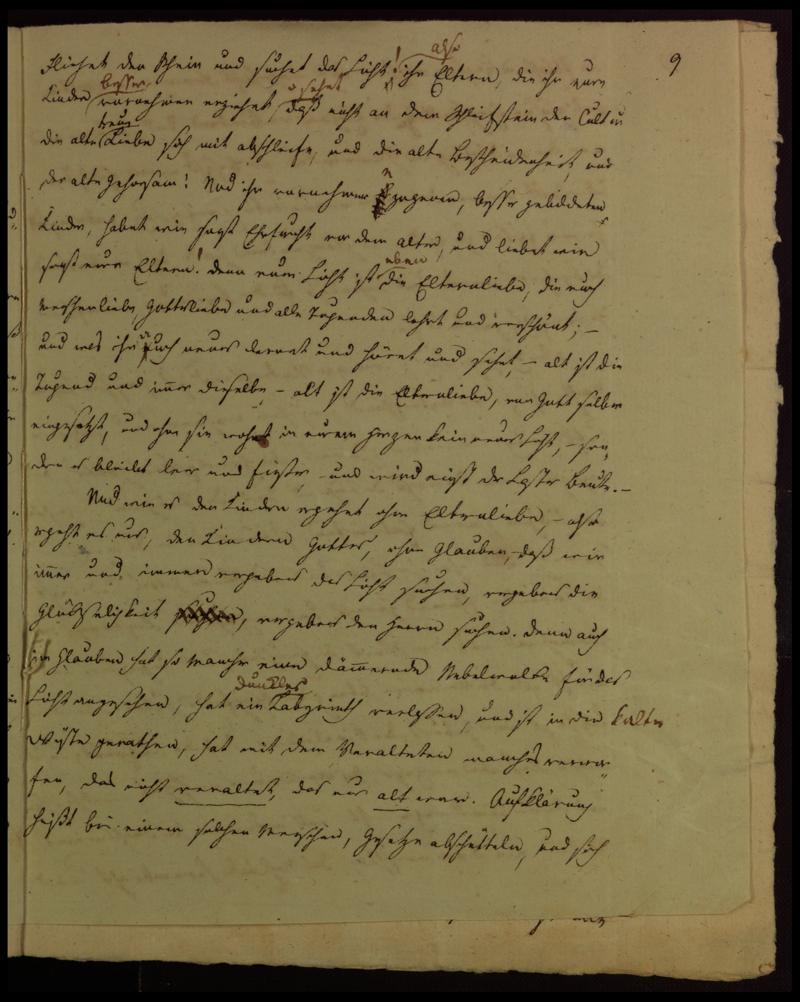 9
Fliehet den Schein und suchet das Licht! ihr Eltern also, die ihr eure
Kinder besser vornehmer erziehet, sehet daß nicht an dem Schleifstein der Cultur
die alte treue Liebe sich mit abschleife, und die alte Bescheidenheit, und
der alte Gehorsam! Und ihr vornehmer erzogenen, besser gebildeten
Kinder, habet wie sonst Ehrfurcht vor dem Alter, und liebet wie
sonst eure Eltern! denn euer Licht ist eben die Elternliebe, die euch
Menschenliebe Gottesliebe und alle Tugenden lehrt und verschönt; –
und was ihr auch neues lernet und höret und sehet, – alt ist die
Tugend und immer dieselbe – alt ist die Elternliebe, von Gott selber
eingesetzt, und ohne sie wohnt in eurem Herzen kein neues Licht, – son-
dern es bleibet leer und finster, und wird einst der Laster Beute. –
Und wie es den Kindern ergehet ohne Elternliebe, – also
ergeht es uns, den Kindern Gottes, ohne Glauben, daß wir
immer und immer vergebens das Licht suchen, vergebens die
Glückseligkeit, vergebens den Herrn suchen. Denn auch
im Glauben hat so mancher eine dämmernde Nebelwolke für das
Licht angesehen, hat ein dunkles Labyrinth verlassen, und ist in die kalte
Wüste gerathen, hat mit dem Veralteten manches verwor-
fen, das nicht veraltet, das nur alt war. Aufklärung
heißt bei einem solchen Menschen, Gesetze abschütteln, und sich